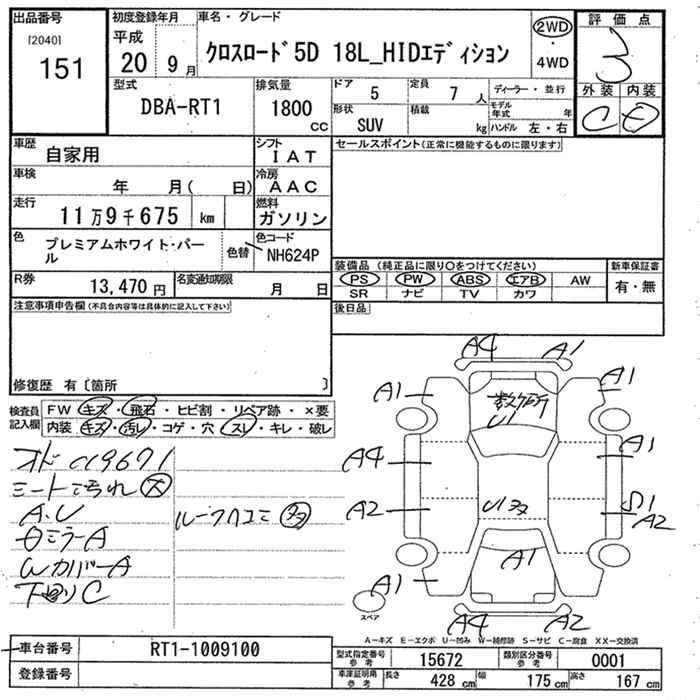 出品番号
[2040]
151
初度登録年月
平成
20 9月
車名・グレード
クロスロード5D 18L_HIDエディション
2WD
・
4WD
評価点
3
型式
DBA-RT1
排気量
1800
CC
ドア 5
定員 7 人
形状 SUV
積載 kg
ディーラー・並行
モデル年式 年
ハンドル 左・右
外装 内装
C D
車歴 自家用
シフト IAT
車検 年 月( 日)
冷房 AAC
走行 11万9千675 km
燃料 ガソリン
色 プレミアムホワイト・パール
色替
色コード NH624P
R券 13,470円
名変通知期限 月 日
セールスポイント(正常に機能するものに限ります)
装備品 (純正品に限り○をつけてください)
PS PW ABS エアB AW
SR ナビ TV カワ
新車保証書
有・無
後日品
注意事項申告欄(不具合内容等は具体的に記入して下さい)
修復歴 有〔箇所 〕
検査員記入欄
FW キズ・飛石・ヒビ割・リペア跡・×要
内装 キズ・汚レ・コゲ・穴・スレ・キレ・破レ
シート汚れ大
A.U
ルーフ凹コミ
ミラーA
WカバーA
下回りC
A4 A1
A1 A1
数ヶ所
U1
A4 A1
A2 S1
A2
A1
A1
スペア
A4 A2
A-キズ E-エクボ U-凹み W-補修跡 S-サビ C-腐食 XX-交換済
車台番号 RT1-1009100
登録番号
型式指定番号参考 15672
類別区分番号参考 0001
車庫証明用参考 長さ 428 cm 幅 175 cm 高さ 167 cm